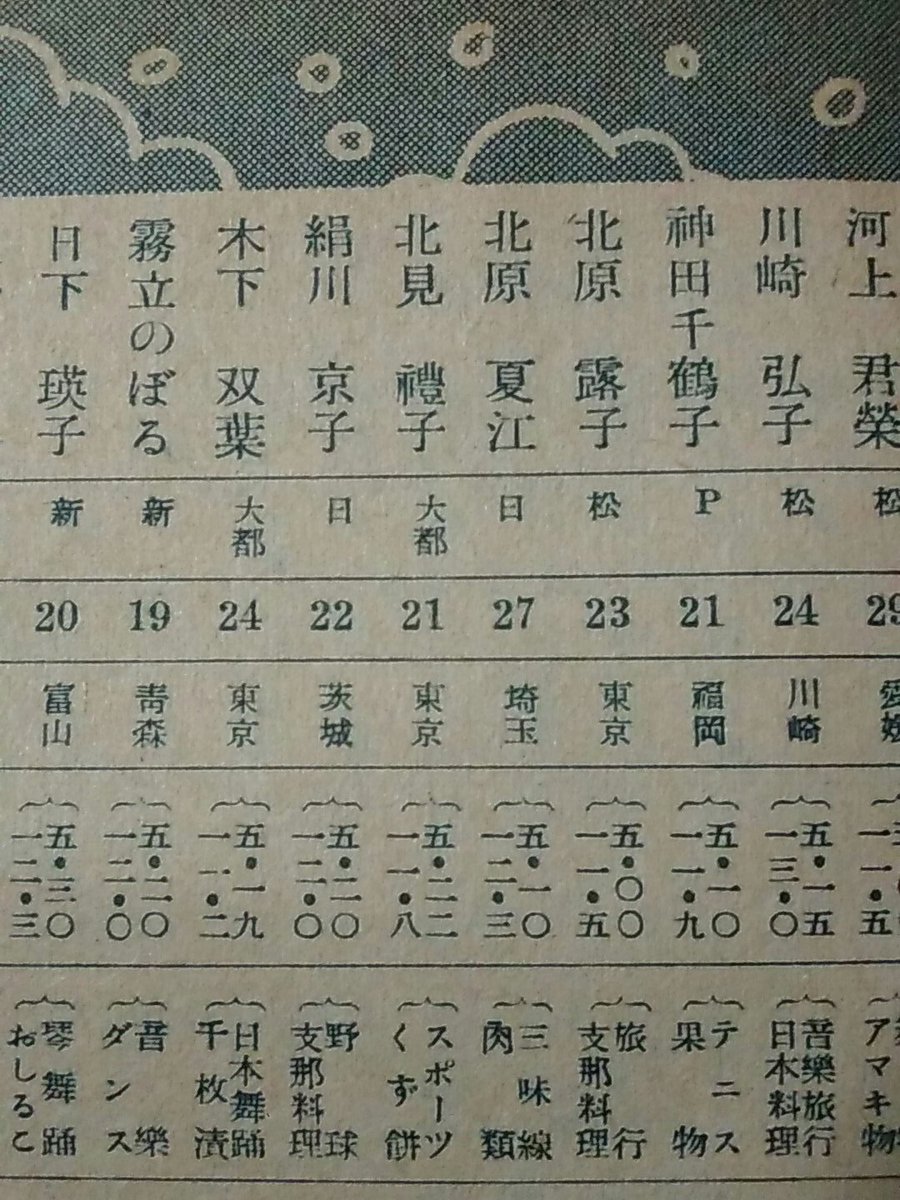 河上 君榮
松
29
五・一五
川崎 弘子
松
24
川崎
五・一五
一三・〇
音樂旅行
日本料理
神田千鶴子
P
21
福岡
五・一〇
一一・九
テニス
果物
北原 露子
松
23
東京
五・〇〇
一一・五
旅行
支那料理
北原 夏江
日
27
埼玉
五・一〇
一二・三
三味線
肉類
北見 禮子
大都
21
東京
五・二二
一一・八
スポーツ
くず餅
絹川 京子
日
22
茨城
五・二〇
一二・〇
野球
支那料理
木下 双葉
大都
24
東京
五・一九
一一・二
日本舞踊
千枚漬
霧立のぼる
新
19
靑森
五・二〇
一二・〇
音樂
ダンス
日下 瑛子
新
20
富山
五・三〇
一二・三
琴舞踊
おしるこ